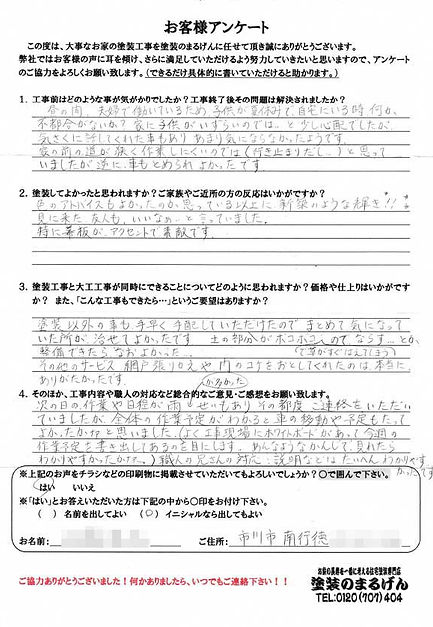 お客様アンケート
この度は、大事なお家の塗装工事を塗装のまるげんに任せて頂き誠にありがとうございます。
弊社ではお客様の声に耳を傾け、さらに満足していただけるよう努力していきたいと思いますので、アンケート
のご協力をよろしくお願い致します。(できるだけ具体的に書いていただけると助かります。)
1. 工事前はどのような事が気がかりでしたか?工事終了後その問題は解決されましたか?
昼の間、夫婦で働いているため、子供が夏休みで、自宅にいる時、何か
不都合がないか?家に子供がいずらいのでは…と少し心配でしたが、
気さくに話してくれた事もあり、あまり気にならなかったようです。
家の前の道が狭く作業しにくいのでは(行き止まりだし…)と思って
いましたが逆に、車もとめられよかったです。
2. 塗装してよかったと思われますか?ご家族やご近所の方の反応はいかがですか?
色のアドバイスもよかったのか思っている以上に、新築のような輝き!!
見に来た友人も、いいなぁ…と言っていました。
特に幕板が、アクセントで素敵です。
3. 塗装工事と大工工事が同時にできることについてどのように思われますか?価格や仕上りはいかがです
か? また、「こんな工事もできたら…」というご要望はありますか?
塗装以外の事も、手早く手配していただけたので、まとめて気になって
いた所が、治せてよかったです。 土の部分がボコボコしているので、ならす…とか、
整備できたらなおよかった… (で草がすぐはえてしまう)
その他のサービス 網戸張りかえや門のコケをおとしてくれたのは本当に
ありがたかったです。
助かった
4. そのほか、工事内容や職人の対応など総合的なご意見・ご感想をお願い致します。
次の日の作業や日程が雨のせいもあり その都度ご連絡をいただい
ていましたが、全体の作業予定がわかると車の移動や予定もたって
よかったかなと思いました。(よく工事現場にホワイトボードがあって今週の
作業予定を書き出してあるのを目にします。あんなようなかんじで見れたら
わかりやすかったかな…)職人の兄さんの対応、説明などはたいへんわかりやす
かったです
※上記のお声をチラシなどの印刷物に掲載させていただいてもよろしいでしょうか?○で囲んで下さい。
はい いいえ
※「はい」とお答えいただいた方は下記の中から○印をお付け下さい。
( )名前を出してよい (○)イニシャルなら出してもよい
お名前: ご住所: 市川市南行徳
ご協力ありがとうございました!何かありましたら、いつでもご連絡下さい!!
お家の長寿を一緒に考える住宅塗装専門店
塗装のまるげん
TEL:0120(707)404